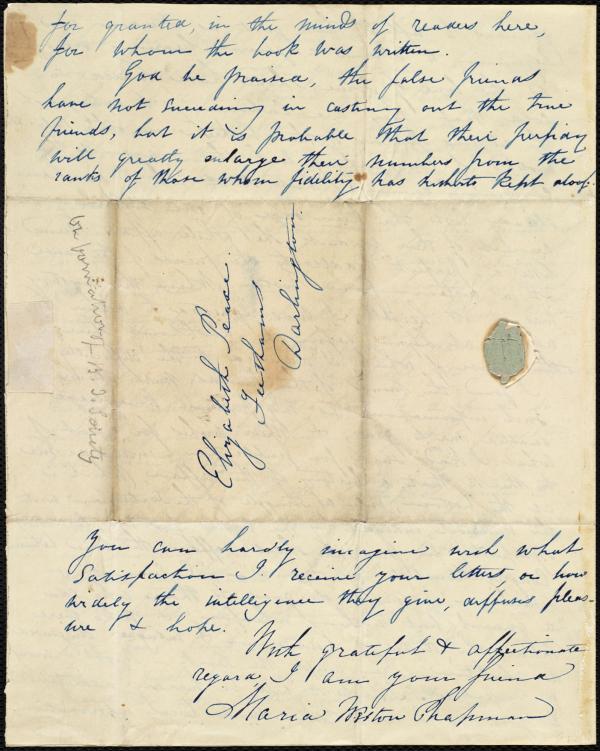 for granted, in the minds of readers here,
for whom the book was written.
God be praised, the false friends
have not succeeding in casting out the true
friends, but it is probable that their perfidy
will greatly enlarge their numbers from the
ranks of those whom fidelity has hitherto kept aloof.
Elizabeth Pease.
Feethams
Darlington.
on formation of
Society
You can hardly imagine with what
satisfaction I receive your letters, or how
widely the intelligence they give, diffuses pleas-
ure & hope.
With grateful & affectionate
regard, I am your friend
Maria Weston Chapman